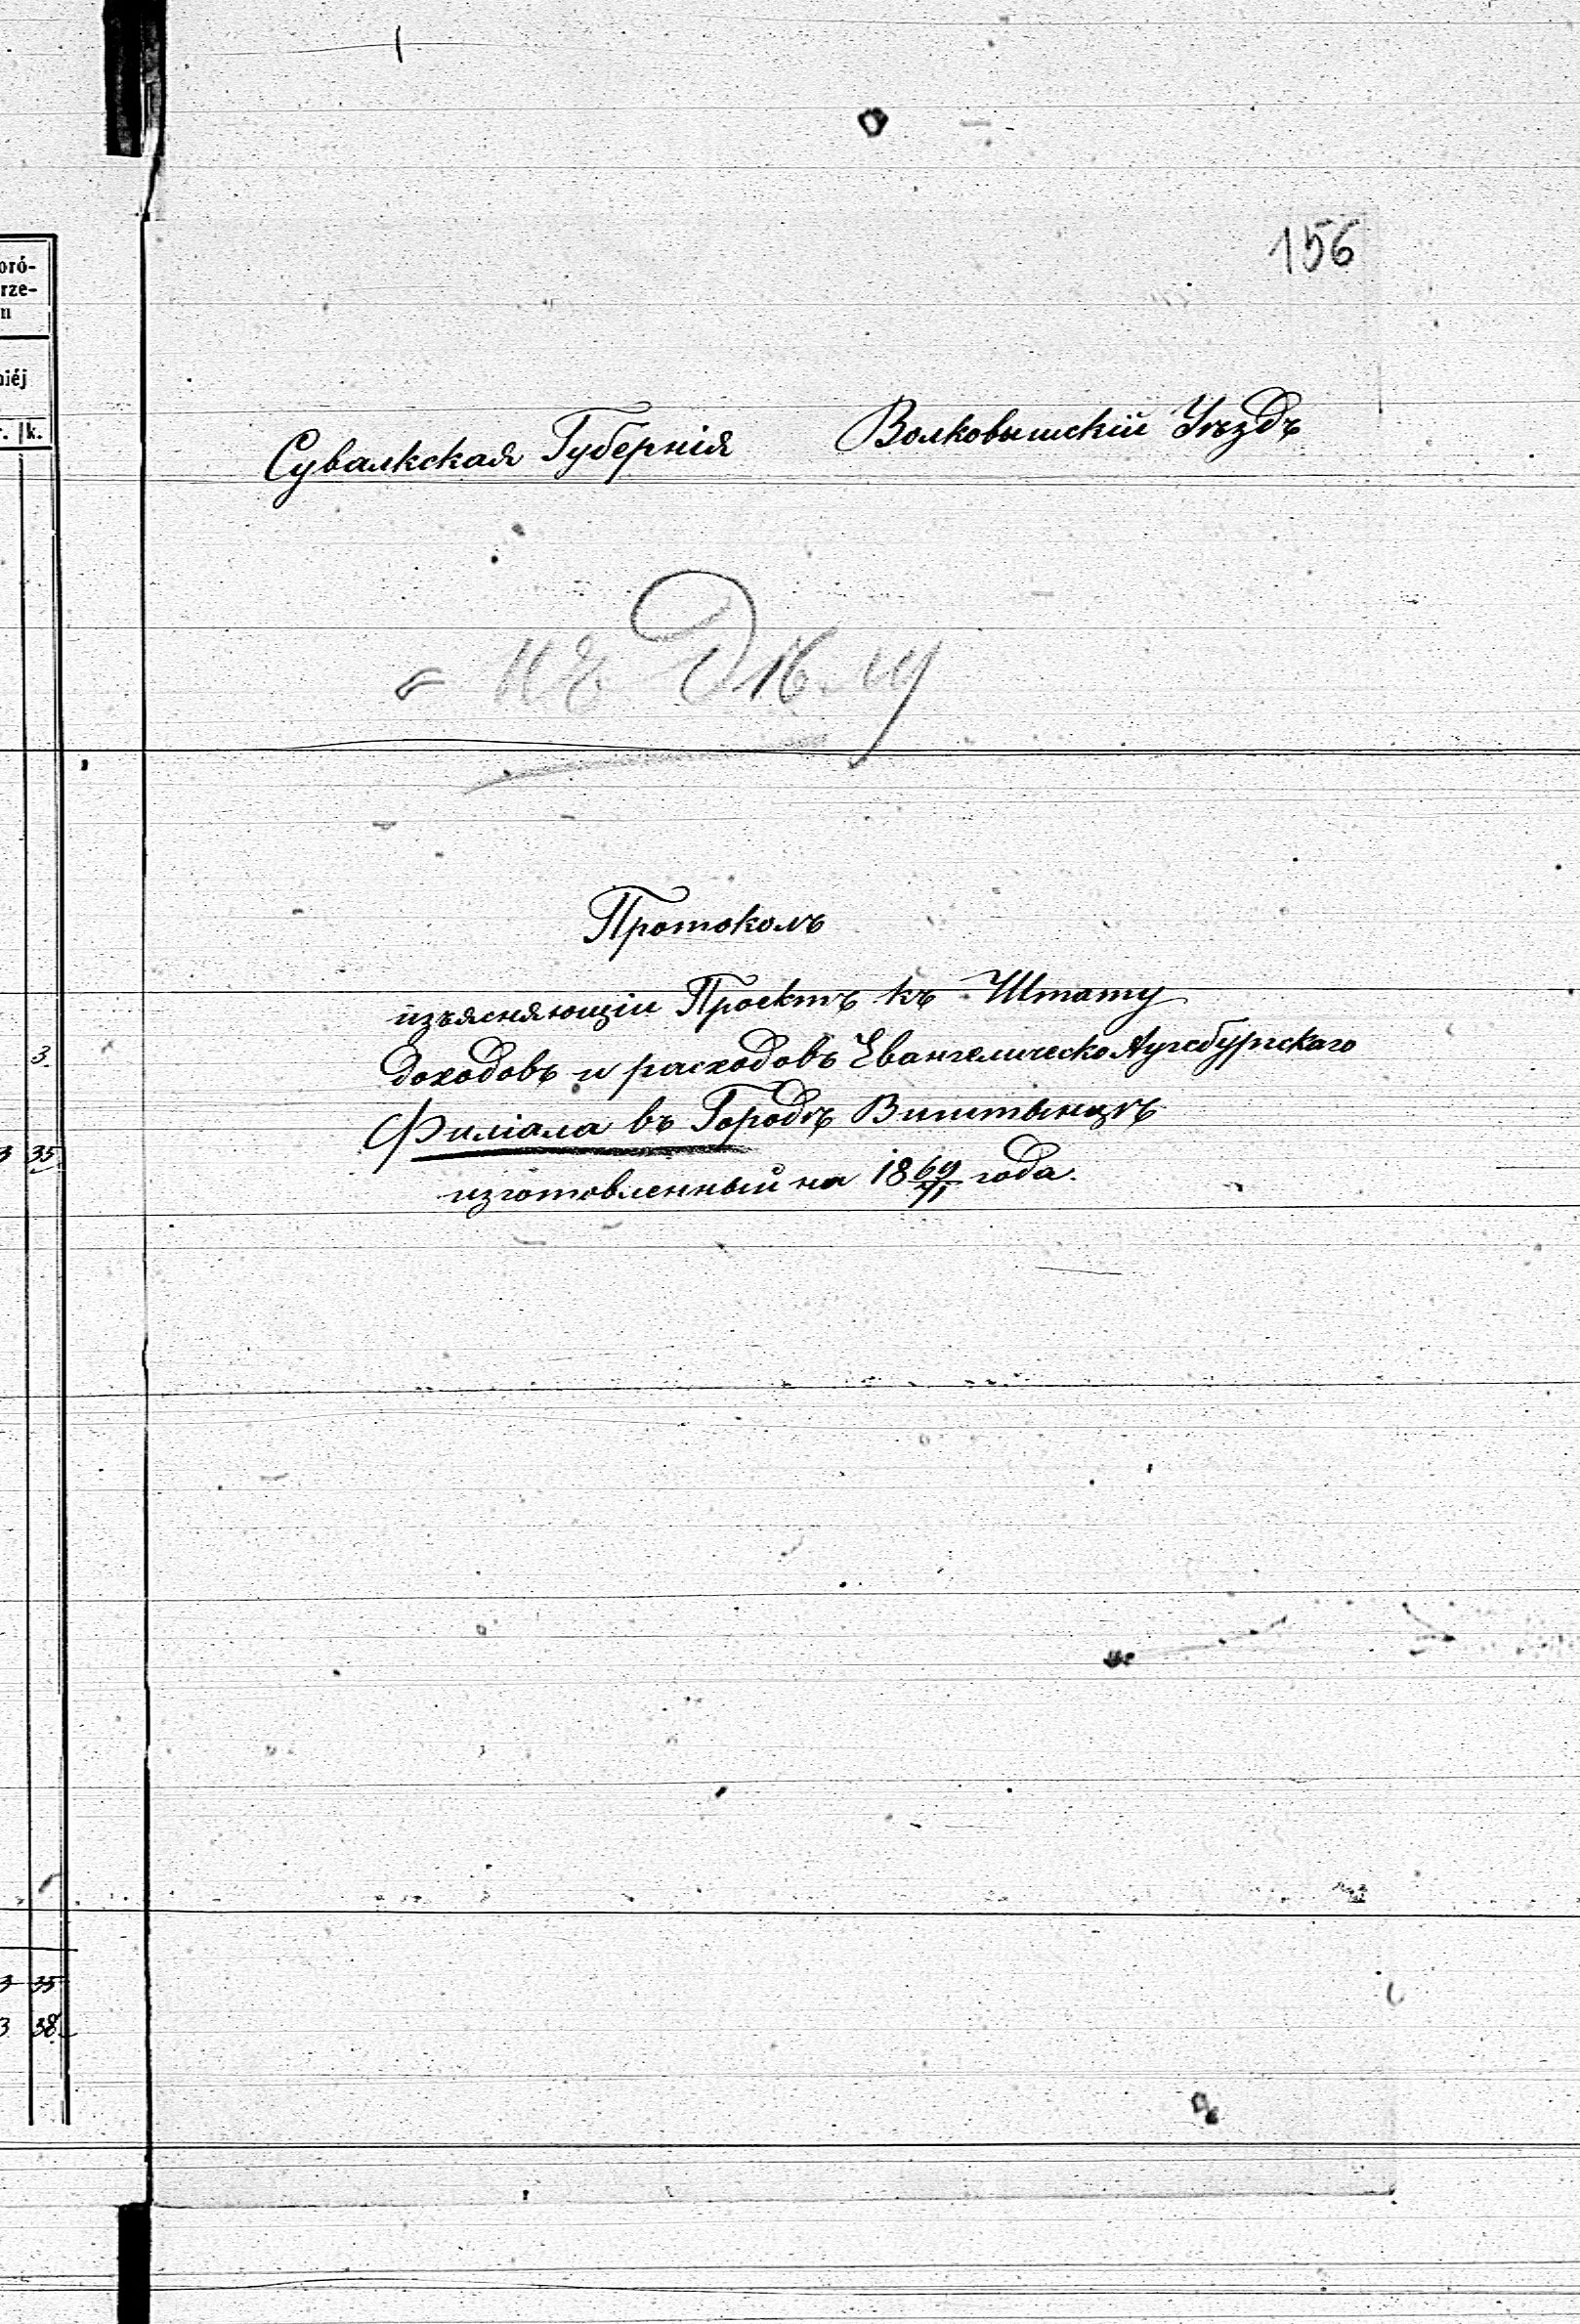 156
Сувалкская Губернія Волковышскій Уѣздъ
Къ Дѣлу
Протоколъ
изъясняющій Проектъ къ Штату
доходовъ и расходовъ ЕвангелическоАугсбургскаго
Филіала въ Городѣ Виштынцѣ
изготовленный на 18 69/71 года.
oró-
rze-
m
niéj
r. k.
3
3 35
3 35
3 38